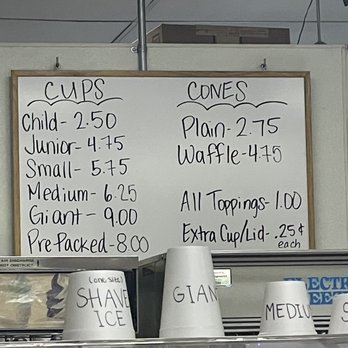 CUPS
Child- 2.50
Junior- 4.75
Small- 5.75
Medium- 6.25
Giant- 9.00
Pre Packed- 8.00
CONES
Plain- 2.75
Waffle- 4.75
All Toppings- 1.00
Extra Cup/Lid- .25¢
each
SHAVE
ICE
GIAN
MEDIU
S
ELECTR